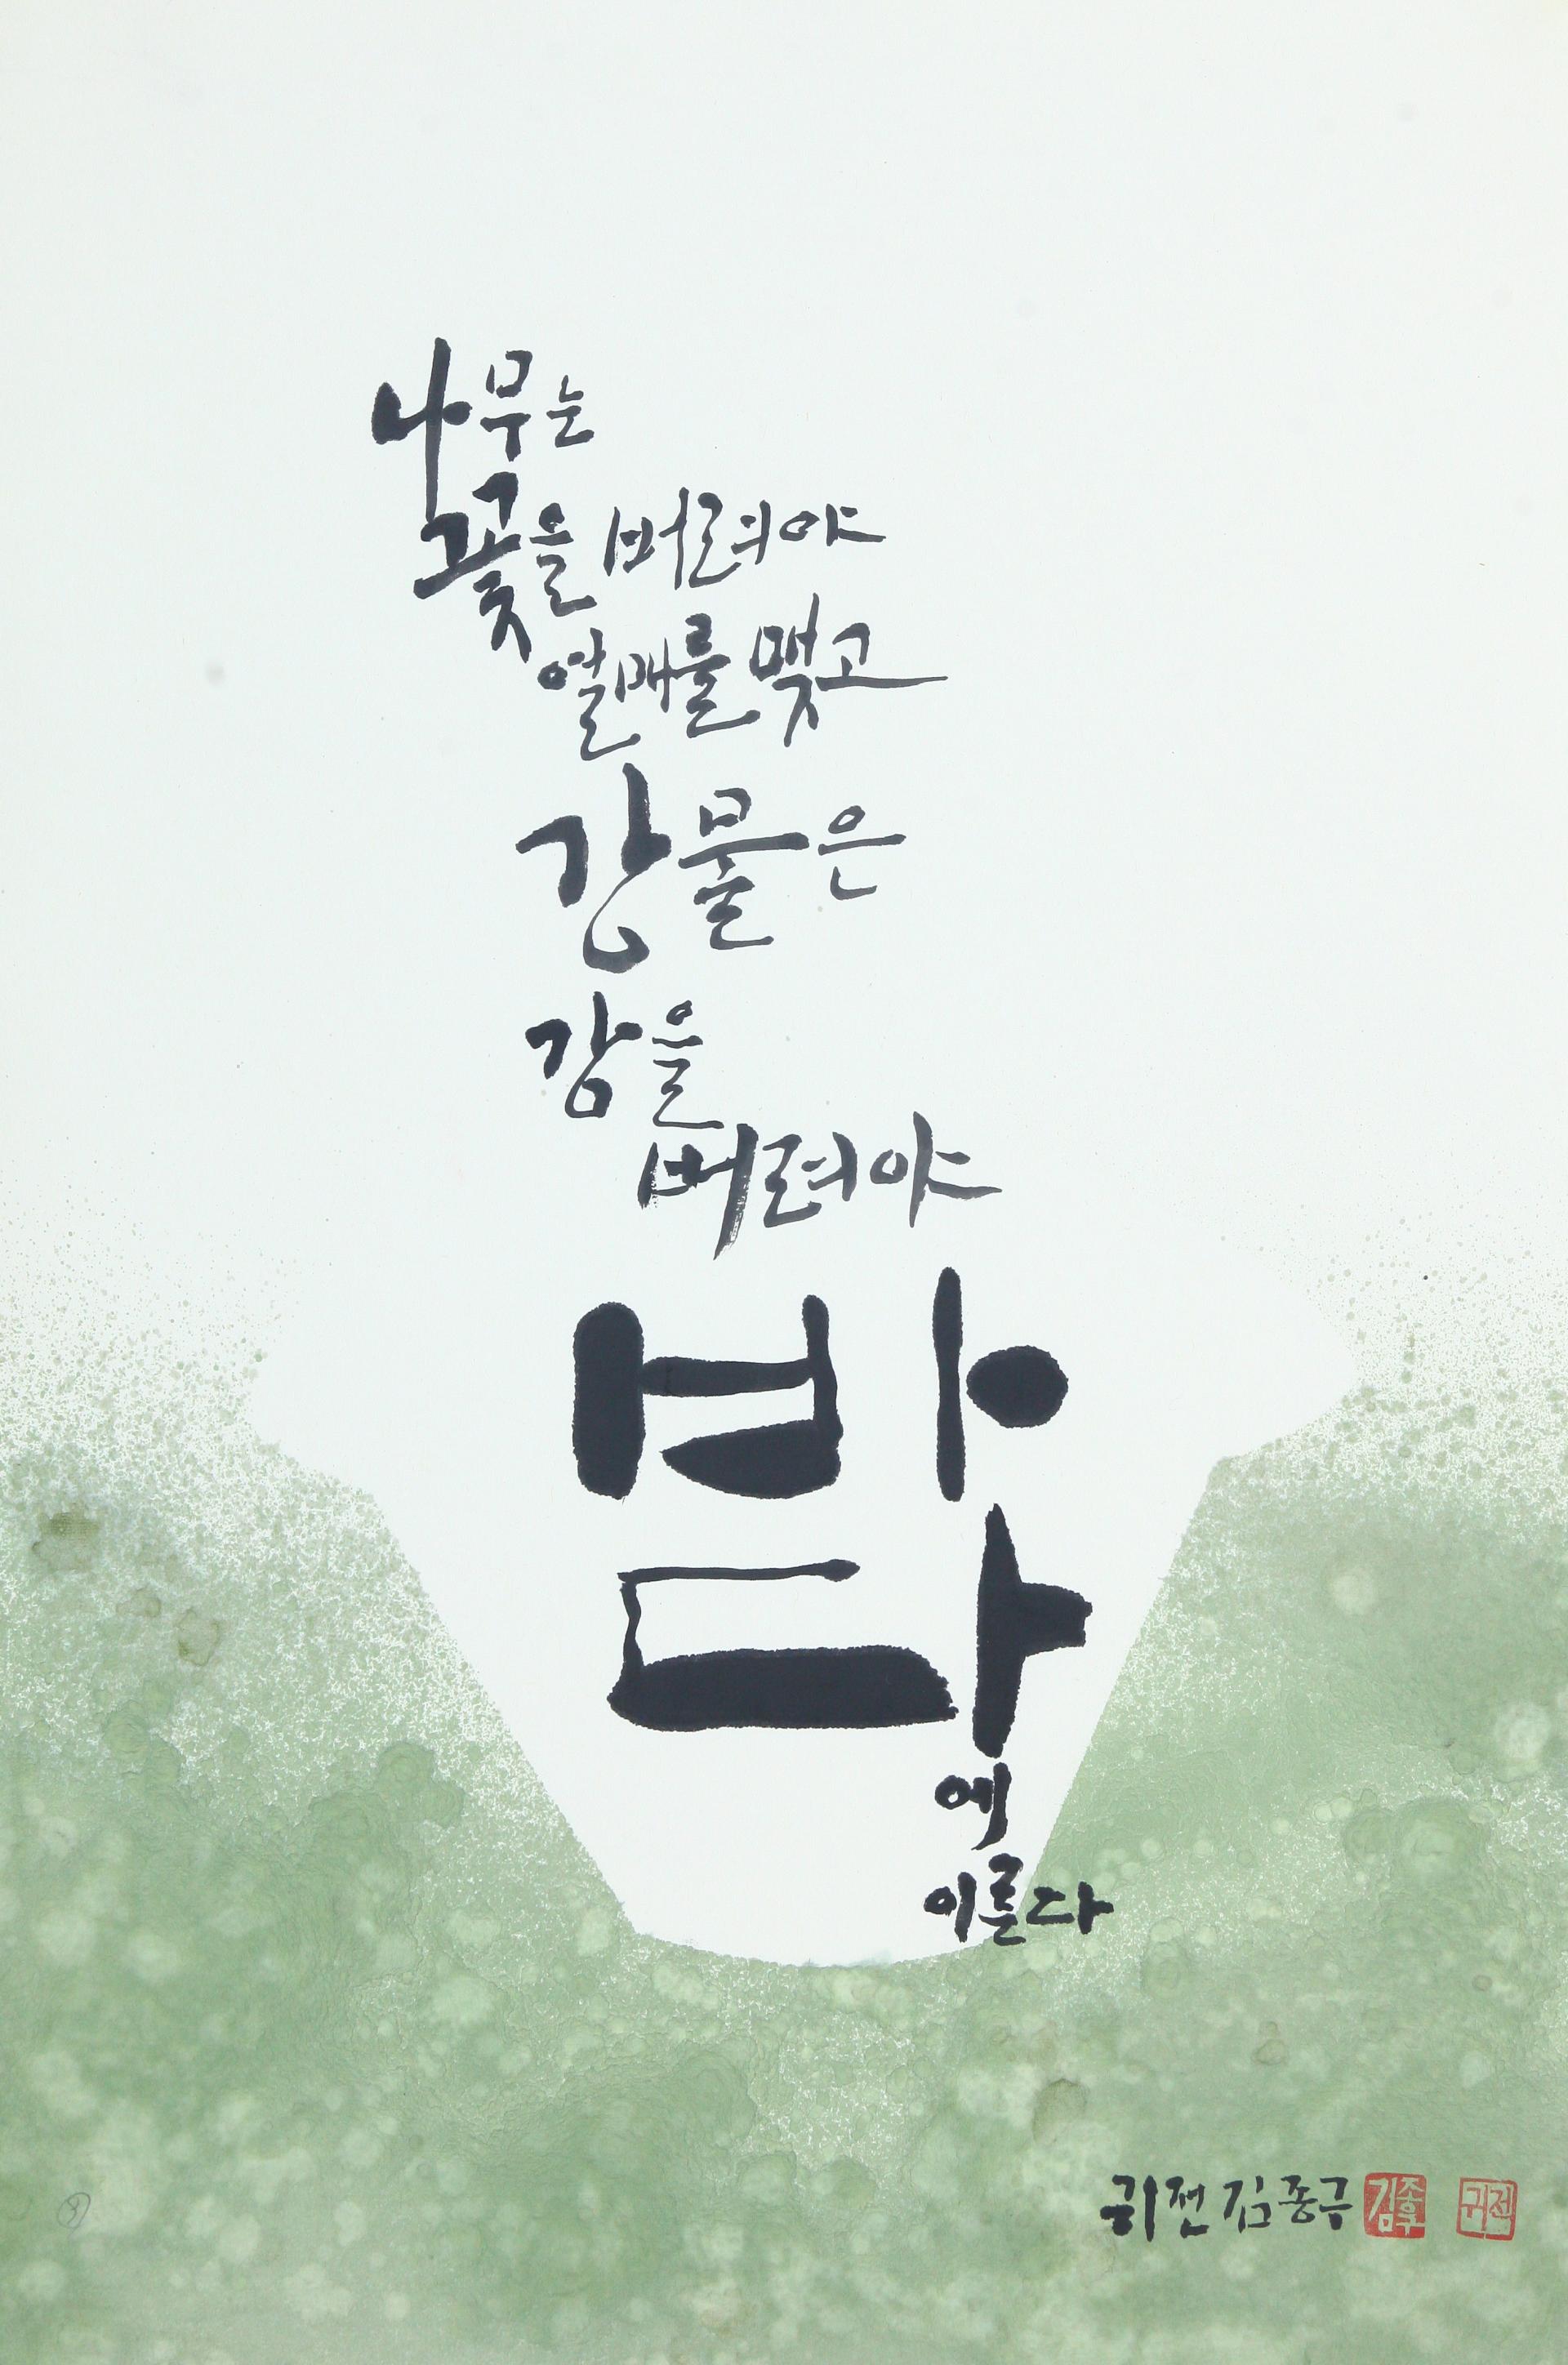 나무는
꽃을 버려야
열매를 맺고
강물은
강을
버려야
바다
에
이른다
귀전 김종
귀전